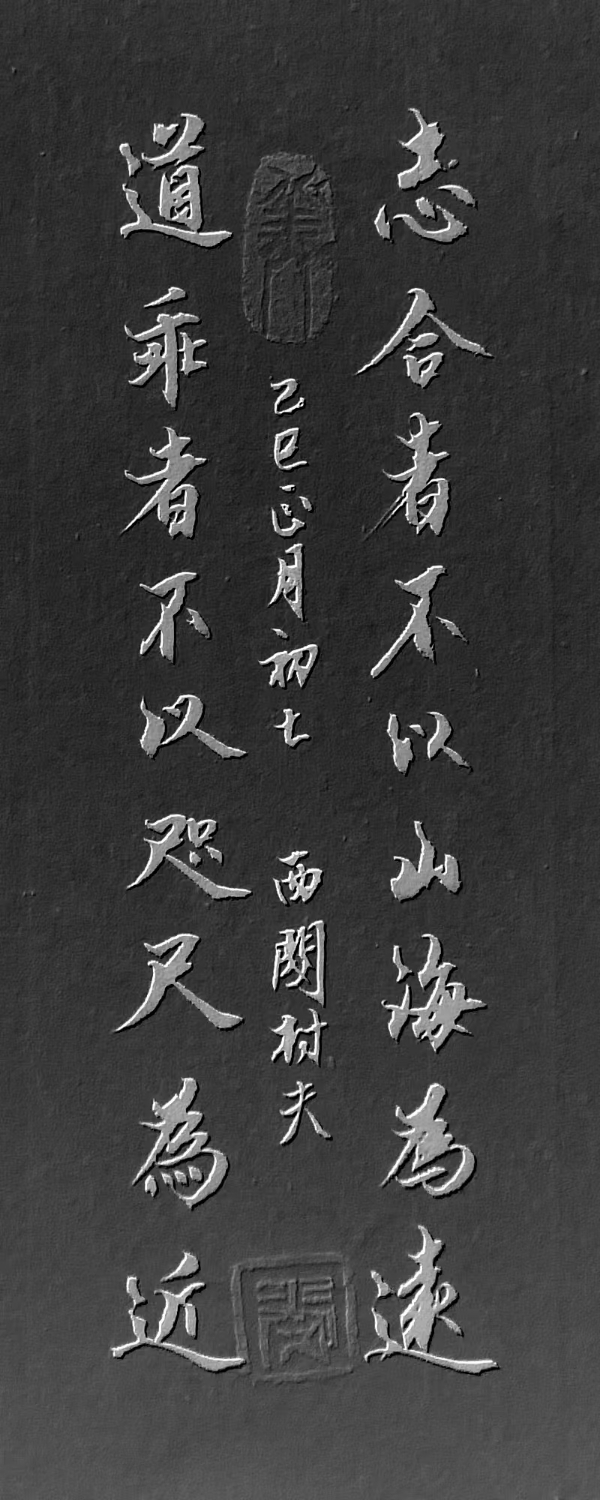 志合者不以山海為遠
己巳正月初七 西関村夫
道乖者不以咫尺為近